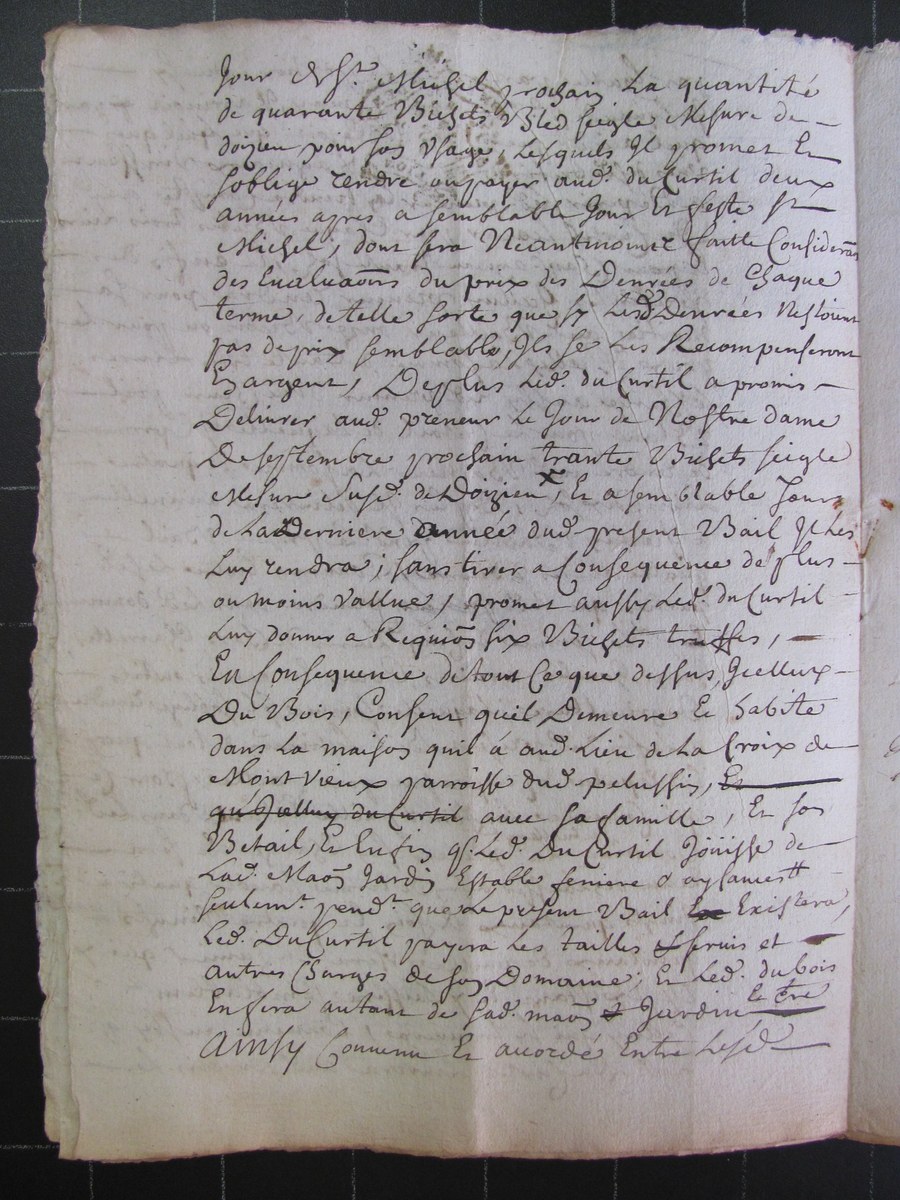 Jour de St. Michel prochain la quantité
de quarante Bichets Bled seigle Mesure de
doizieu pour son vsage, Lesquels Il promet Et
soblige rendre ou payer aud. du Curtil deux
années apres a semblable Jour Et feste St
Michel, dont sera Neantmoins faitte Consideraõn
des Eualuaõns du prix des Denrées de Chaque
terme, de telle sorte que sy Lesd. Denrées Nestoient
pas de prix semblable, Ils se Les Recompenseront
En argent, De plus Led. du Curtil a promis
Deliurer aud. preneur Le Jour de Nostre dame
De septembre prochain trante Bichets seigle
Mesure Susd. de Doizieu x, Et a semblable Jour
de La Derniere année dud. present Bail Il Les
Luy rendra; sans tirer a Consequence de plus
ou moins vallue, promet aussy Led. du Curtil
Luy donner a Requiõn six Bichets truffes,
En Consequence de tout Ce que dessus, Icelluy
Du Bois, Consent quil Demeure Et habite
dans La maison quil á aud. Lieu de La Croix de
Mont vieux parroisse dud. pelussin, Et
qu'Icelluy du Curtil auec sa famille, Et son
Betail, Et Enfin q. Led. Du Curtil Joüisse de
Lad. Maõn Jardin Estable feniere & aysances
seulemt. pendt. que Le present Bail Ex Existera,
Led. Du Curtil payera Les tailles & seruis et
autres Charges de son Domaine; Et Led. dubois
En fera autant de sad. maõn & Jardin Et
Ainsy Conuenu Et acordé Entre Lesd.